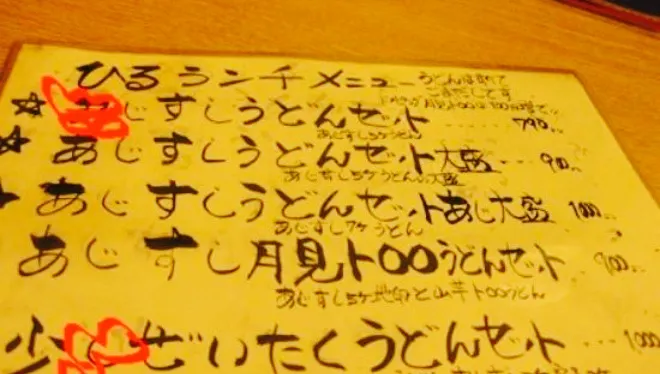 ひるランチメニュー うどんは全て
☆ あじすしうどんセット ・・・・・ 790
あじすし5ケうどん
☆ あじすしうどんセット大盛 ・・・ 900
あじすし5ケうどん大盛
あじすしうどんセットあじ大盛 1000
あじすし7ケうどん
あじすし月見トロロうどんセット 900
あじすし5ケ地卵と山芋トロロうどん
少 ぜいたくうどんセット ・・・ 1000